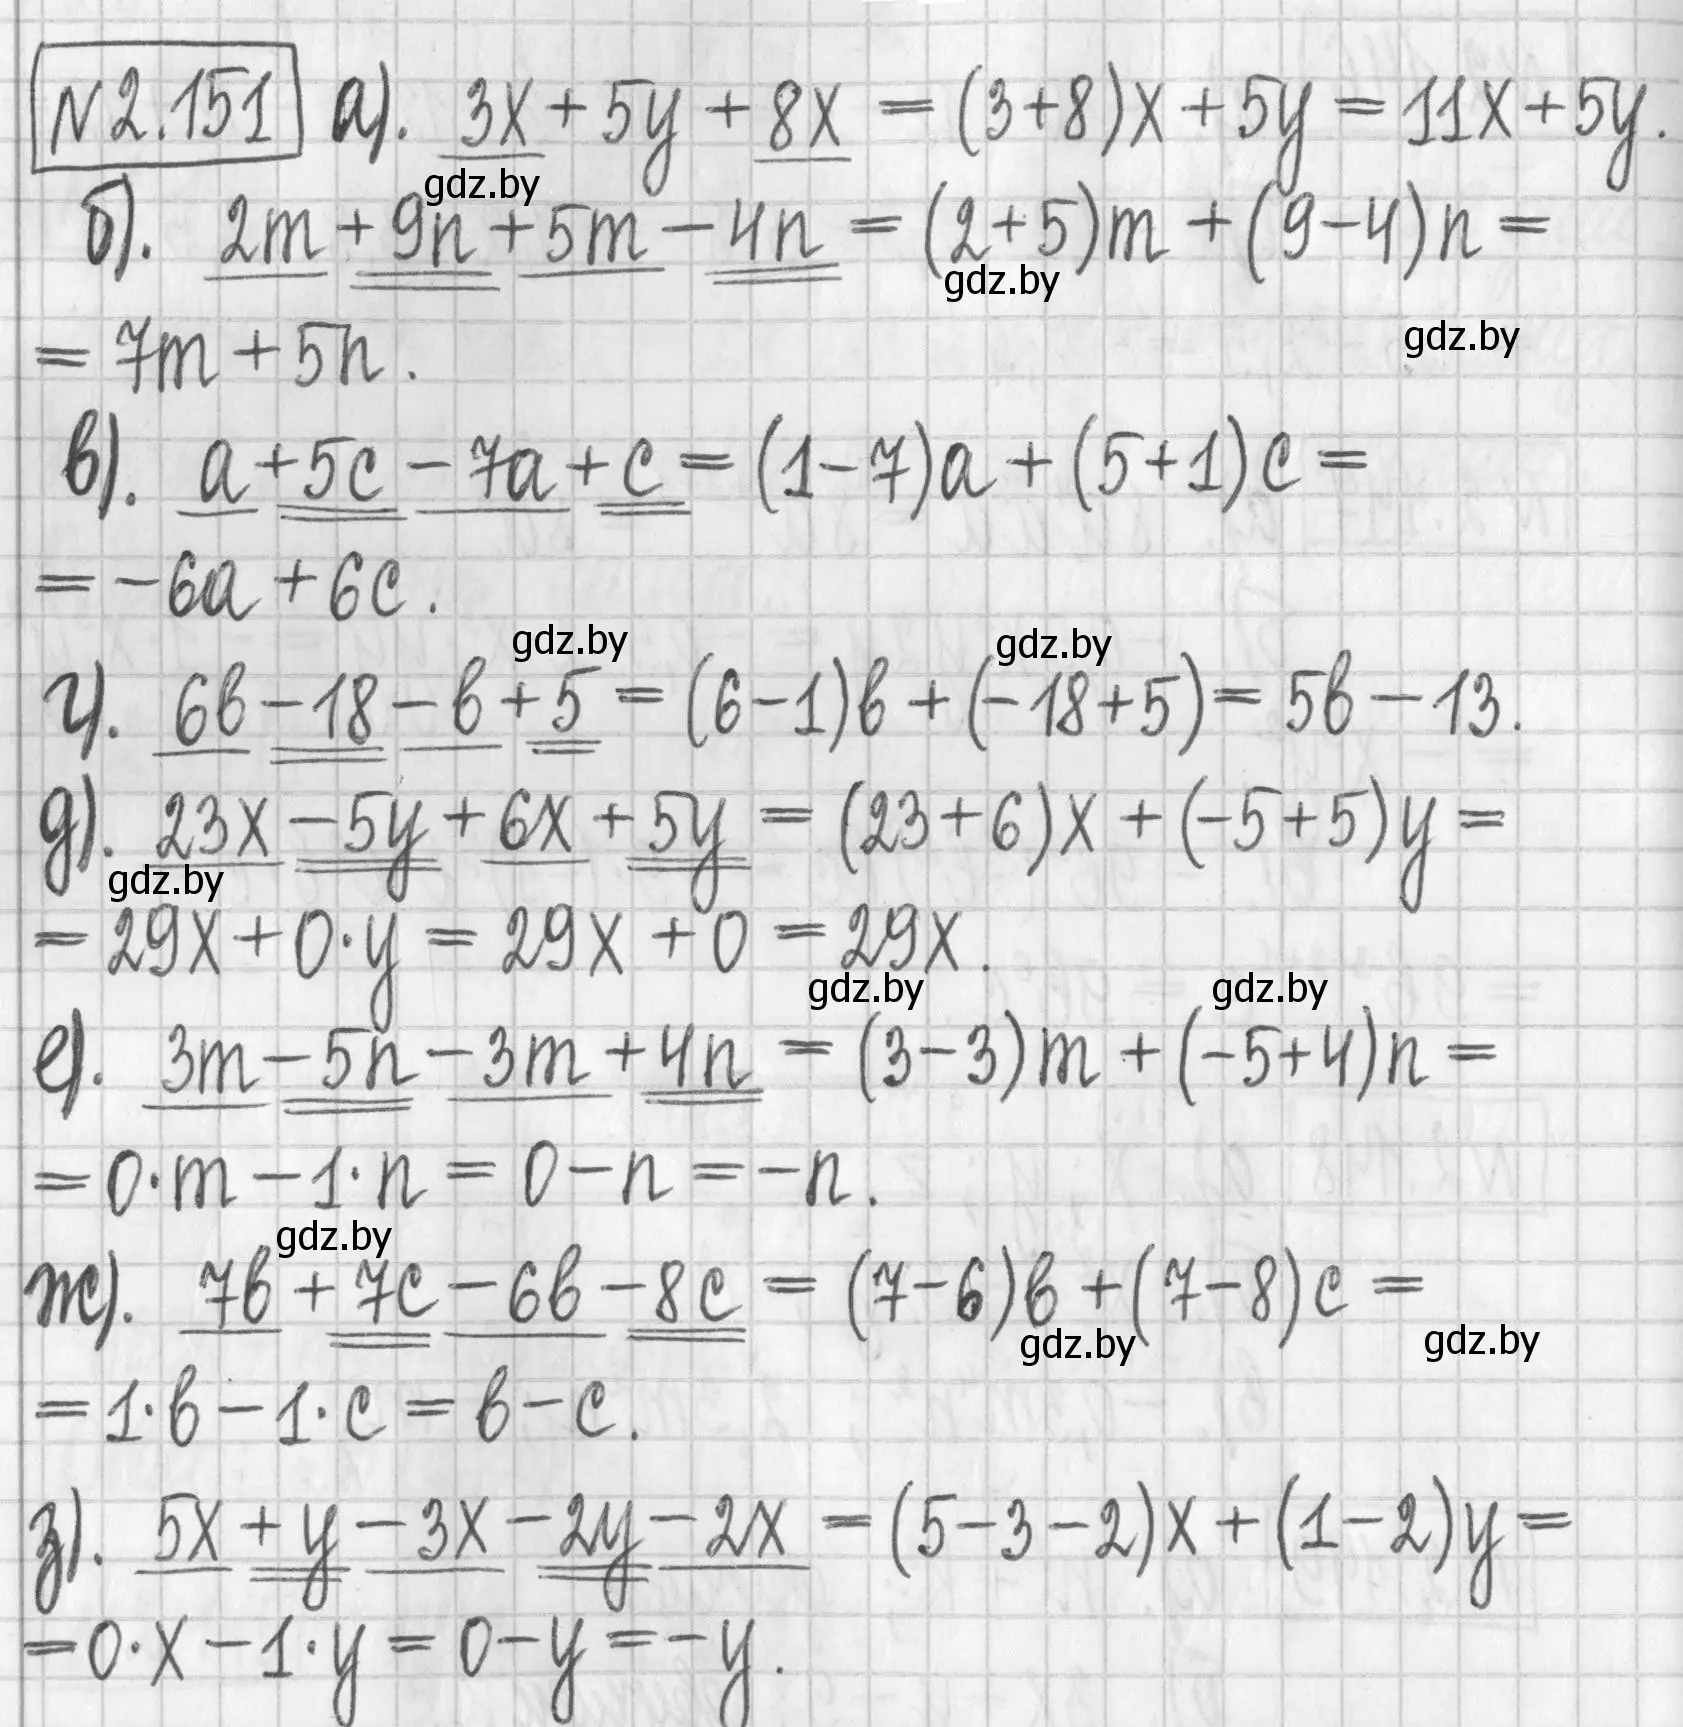 N2.151 а). 3x + 5y + 8x = (3+8)x + 5y = 11x + 5y.
gdz.by
б). 2m + 9n + 5m - 4n = (2+5)m + (9-4)n =
gdz.by
= 7m + 5n.
gdz.by
в). a + 5c - 7a + c = (1-7)a + (5+1)c =
= -6a + 6c.
gdz.by gdz.by
г). 6b - 18 - b + 5 = (6-1)b + (-18+5) = 5b - 13.
д). 23x - 5y + 6x + 5y = (23+6)x + (-5+5)y =
gdz.by
= 29x + 0·y = 29x + 0 = 29x.
gdz.by gdz.by
е). 3m - 5n - 3m + 4n = (3-3)m + (-5+4)n =
= 0·m - 1·n = 0 - n = -n.
gdz.by
ж). 7b + 7c - 6b - 8c = (7-6)b + (7-8)c =
gdz.by gdz.by
= 1·b - 1·c = b - c.
з). 5x + y - 3x - 2y - 2x = (5-3-2)x + (1-2)y =
= 0·x - 1·y = 0 - y = -y.